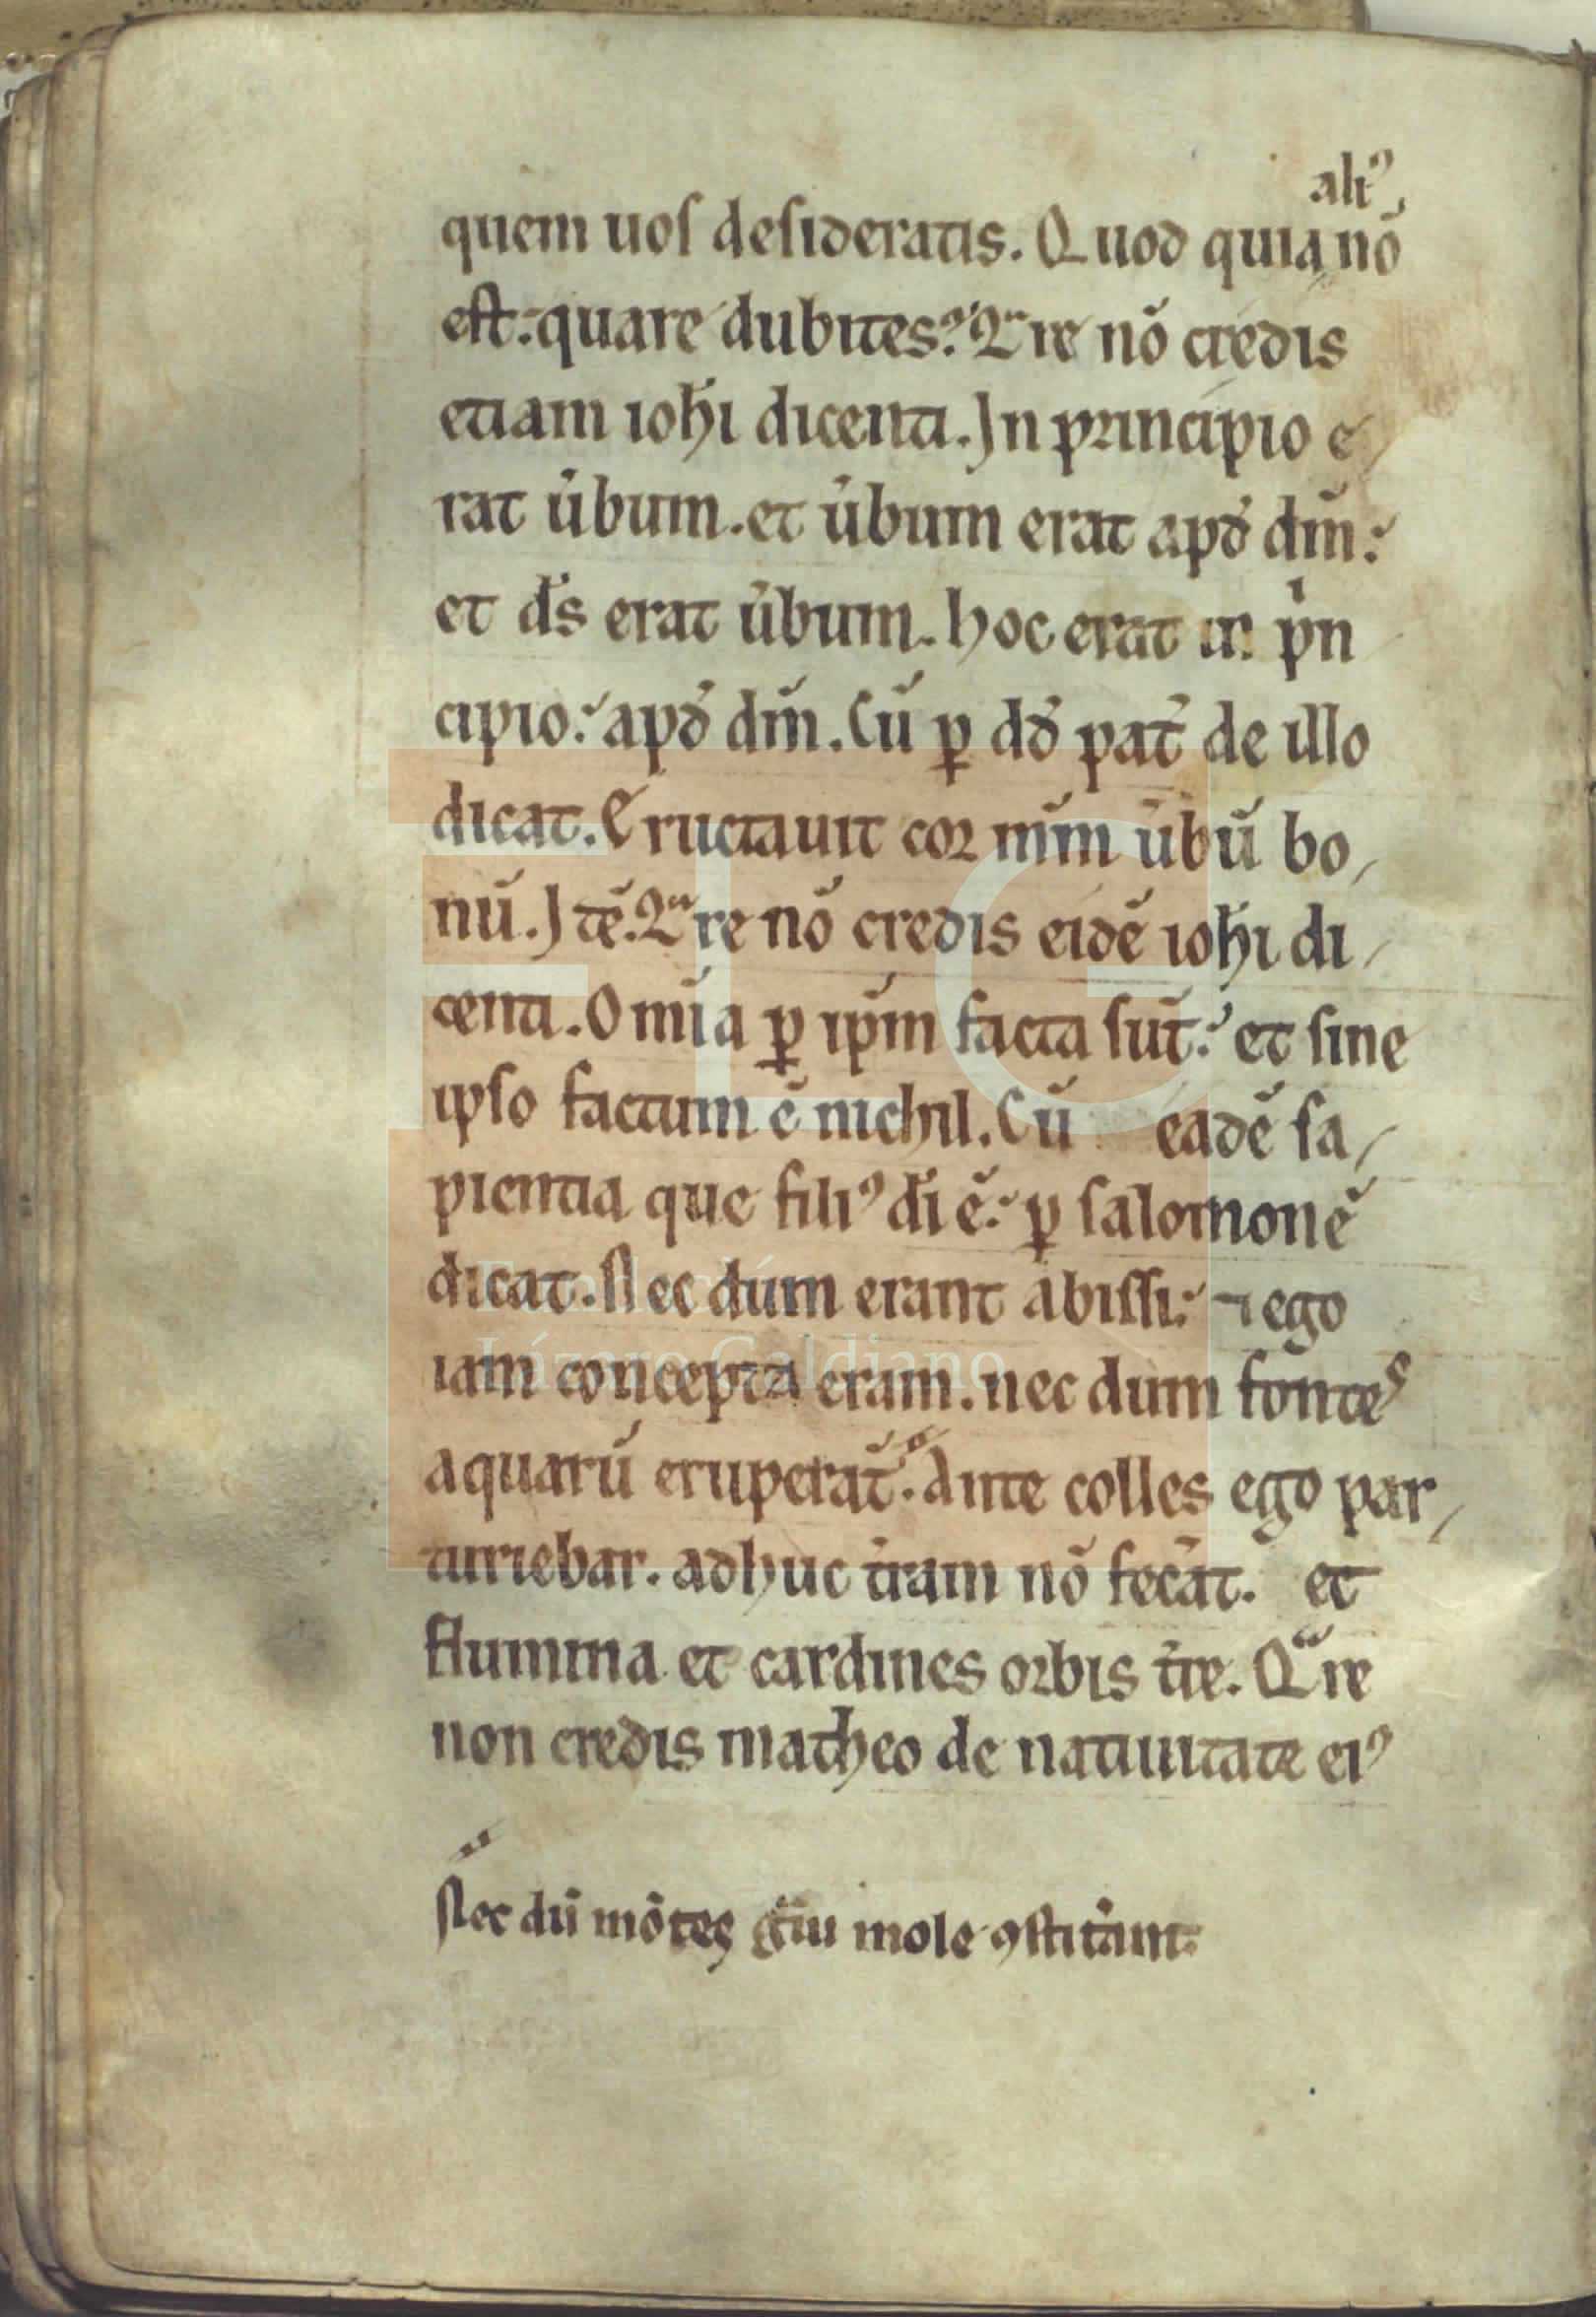 aliꝰ
quem uoſ deſideratis. Quod quia nō
eſt: quare dubites? Qͣre nō credis
etiam ioh̄i dicenti. In principio e
rat u̾bum. et u̾bum erat apđ dm̄:
et ds̄ erat u̾bum. hoc erat in pͥn
cipio: apđ dm̄. Cū ꝑ dđ pat̄ de illo
dicat. Eructauit cor mm̄ u̾bū bo
nū. Itē. Qͣre nō credis eidē ioh̄i di
centi. Omīa ꝑ ip̄m facta ſūt: et ſine
ipſo factum ē nichil. Cū eadē ſa
pientia que filiꝰ dī ē: ꝑ ſalomonē
dicat. Nec dum erant abiſſi: ⁊ ego
iam concepta eram. nec dum fontes
aquarū eruperāt. Ante colles ego par
turiebar. adhuc t̾ram nō fecāt. et
flumina et cardines orbis t̾re. Qͣre
non credis matheo de natiuitate eiꝰ
Nec dū mōtes gͣui mole ꝯſtit̾ant.
FLG
Fundación
Lázaro Galdiano